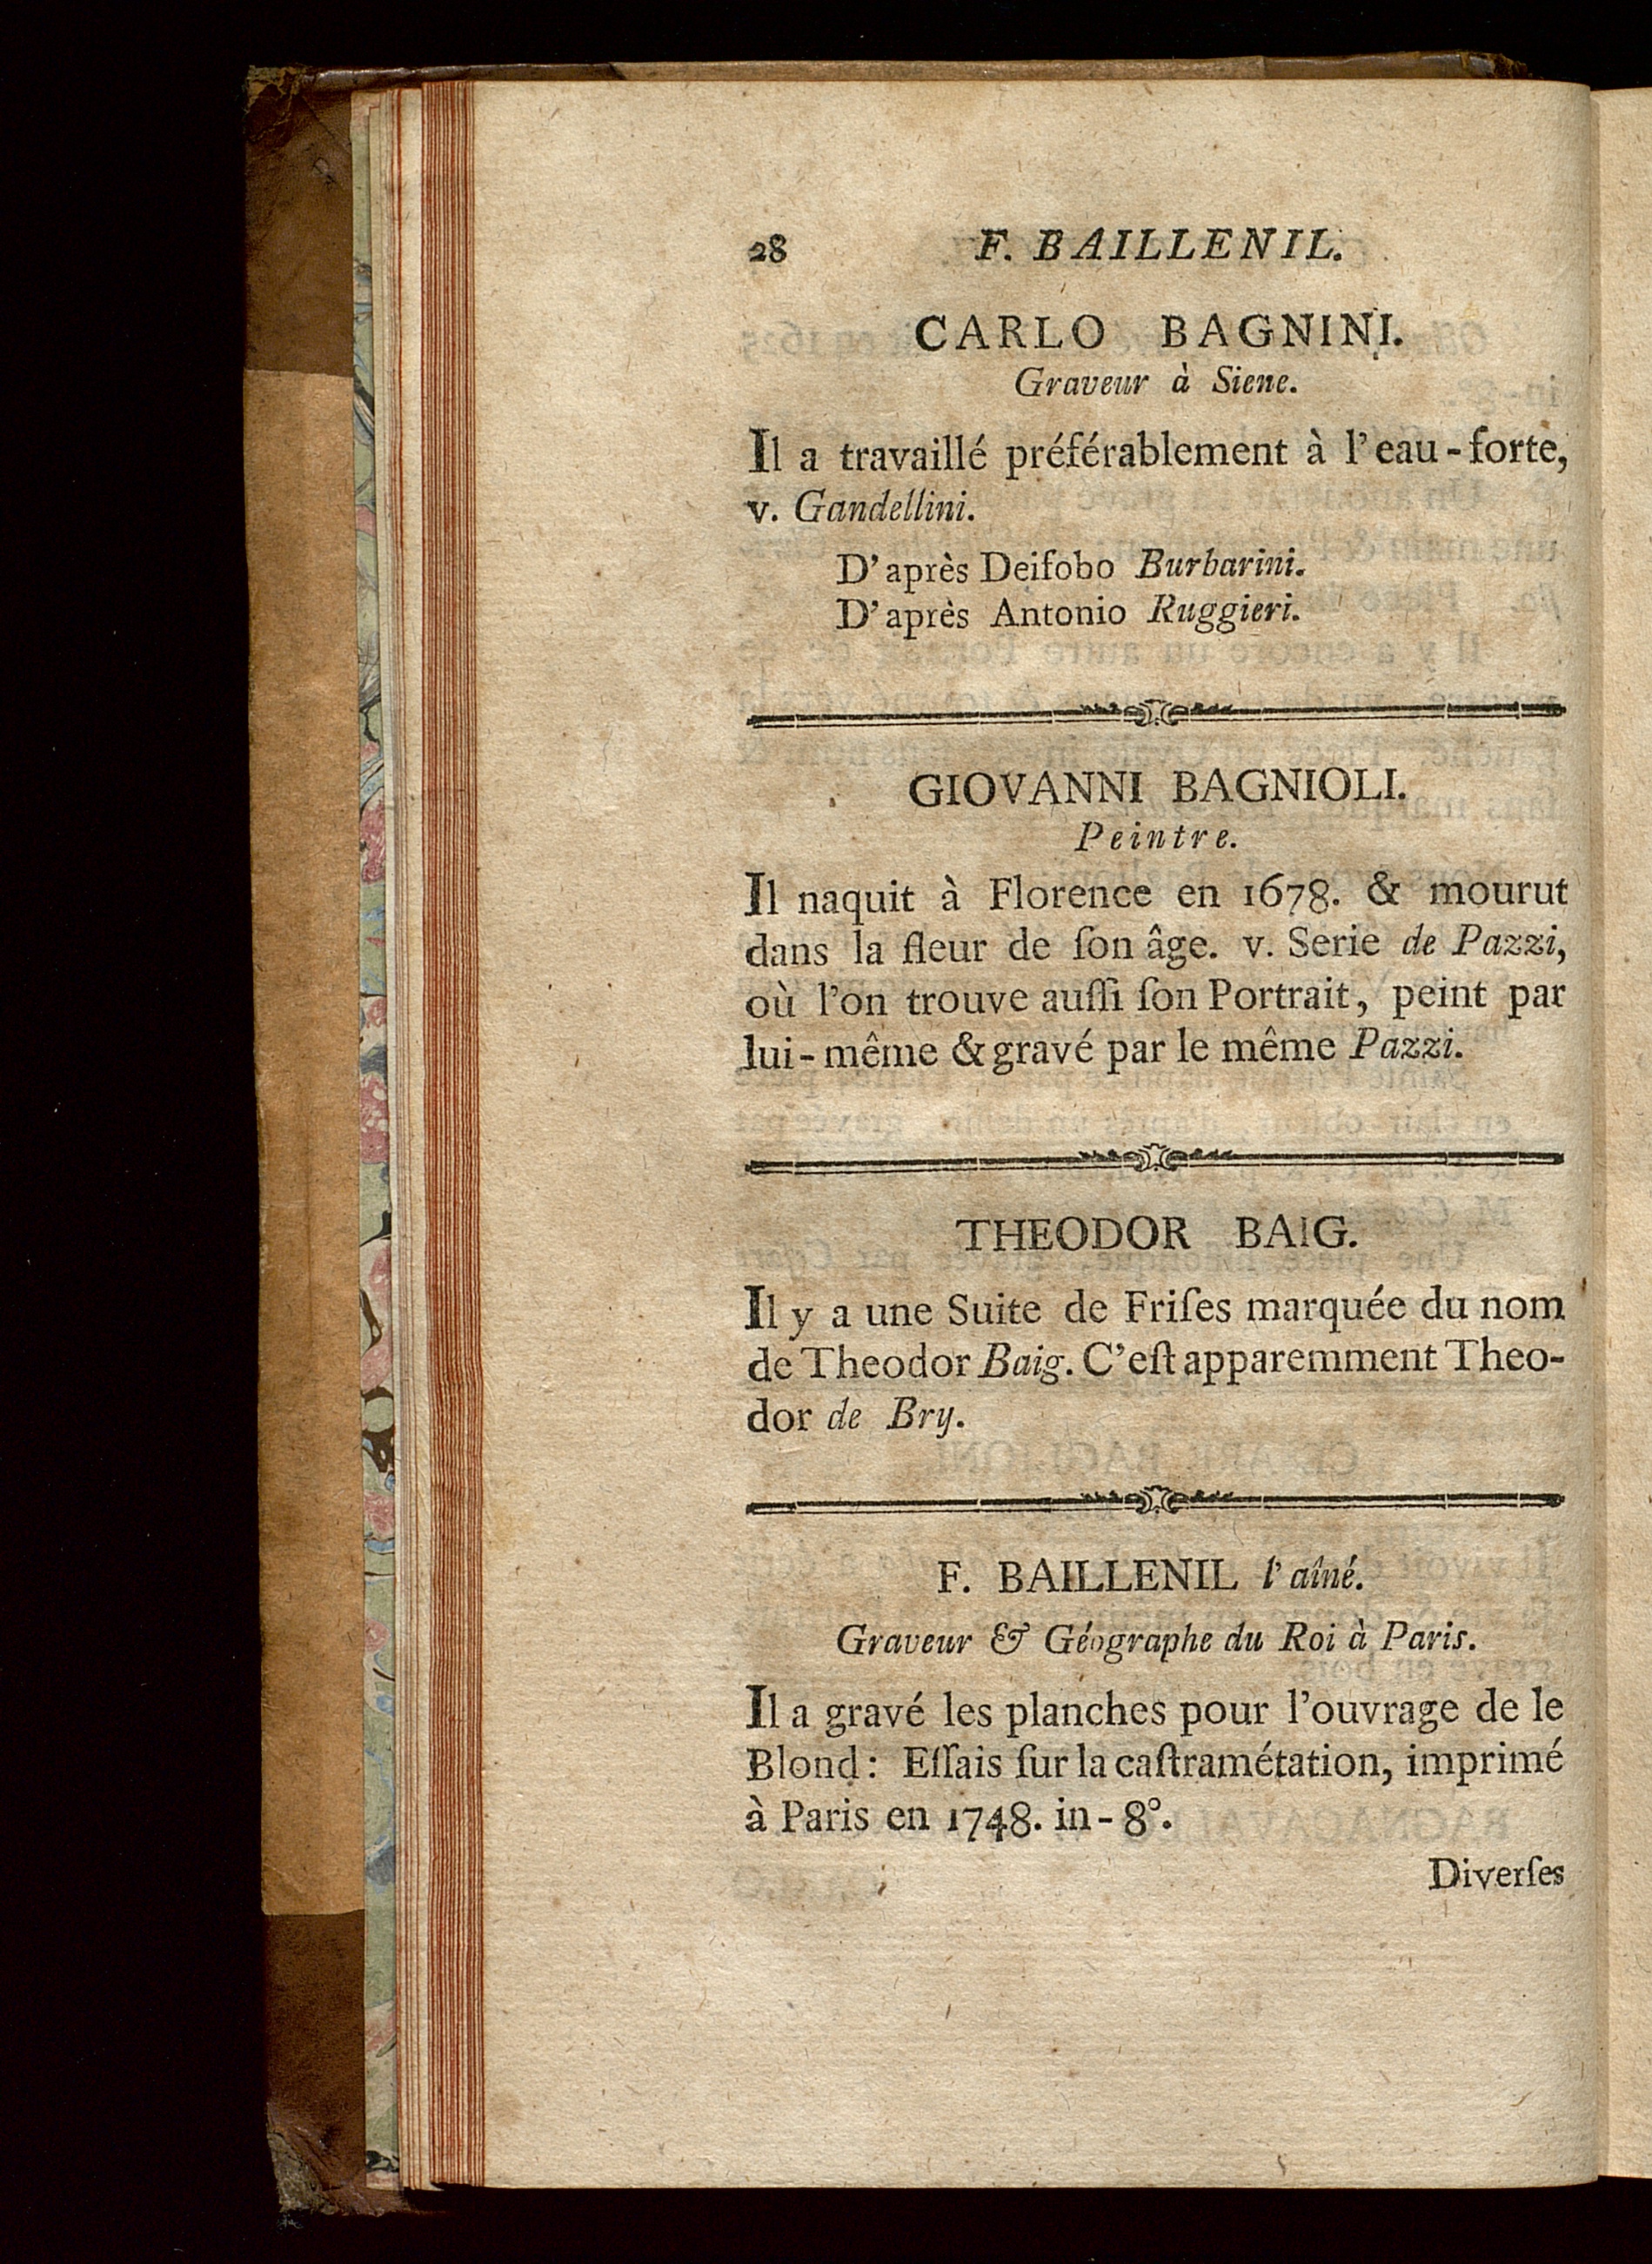 28 F. BAILLENIL.
CARLO BAGNINI.
Graveur à Siene.
Il a travaillé préférablement à l'eau-forte,
v. Gandellini.
D'après Deifobo Burbarini.
D'après Antonio Ruggieri.
GIOVANNI BAGNIOLI.
Peintre.
Il naquit à Florence en 1678. & mourut
dans la fleur de ſon âge. v. Serie de Pazzi,
où l'on trouve auſſi ſon Portrait, peint par
lui-même & gravé par le même Pazzi.
THEODOR BAIG.
Il y a une Suite de Friſes marquée du nom
de Theodor Baig. C'eſt apparemment Theo-
dor de Bry.
F. BAILLENIL l'aîné.
Graveur & Géographe du Roi à Paris.
Il a gravé les planches pour l'ouvrage de le
Blond: Eſſais ſur la caſtramétation, imprimé
à Paris en 1748. in-8°.
Diverſes